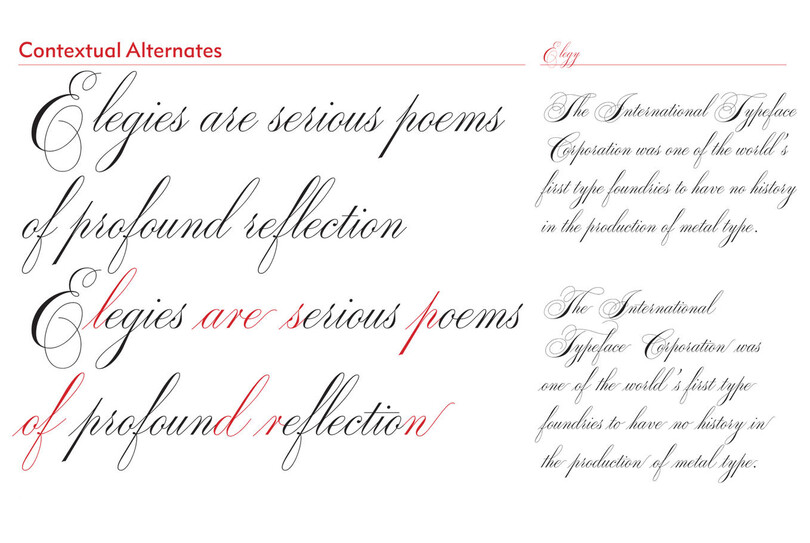 Contextual Alternates
Elegies are serious poems
of profound reflection
Elegies are serious poems
of profound reflection
Elegy
The International Typeface
Corporation was one of the world's
first type foundries to have no history
in the production of metal type.
The International
Typeface Corporation was
one of the world's first type
foundries to have no history in
the production of metal type.